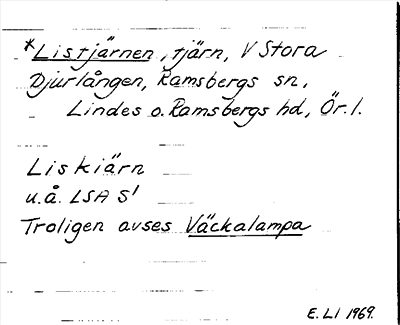 *Listjärnen, tjärn, V Stora
Djurlången, Ramsbergs sn,
Lindes o. Ramsbergs hd, Ör. l.
Liskiärn
u.å. LSA S1
Troligen avses Väckalampa
E. LI 1969.